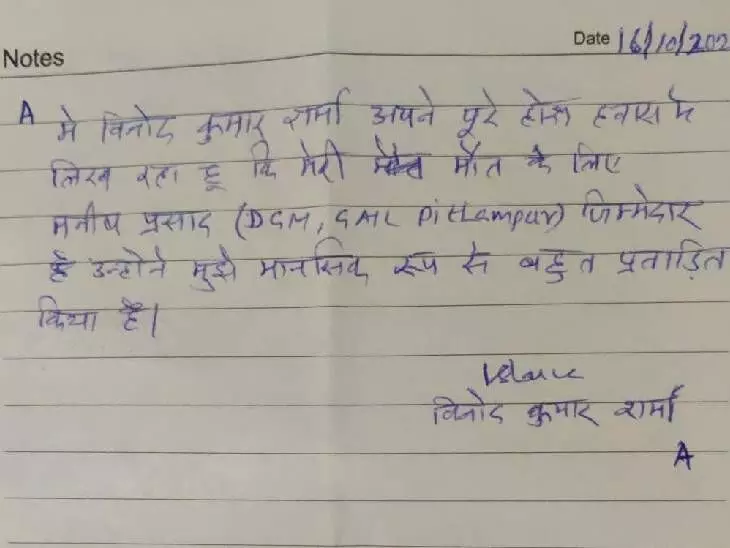 Notes
Date 16/10/202
A मे विनोद कुमार शर्मा अपने पूरे होश हवास मे
लिख रहा हू कि मेरी मौत के लिए
मनीष प्रसाद (DGM, GAIL Pithampur) जिम्मेदार
है उन्होने मुझे मानसिक रूप से बहुत प्रताड़ित
किया है।
विनोद कुमार शर्मा
A